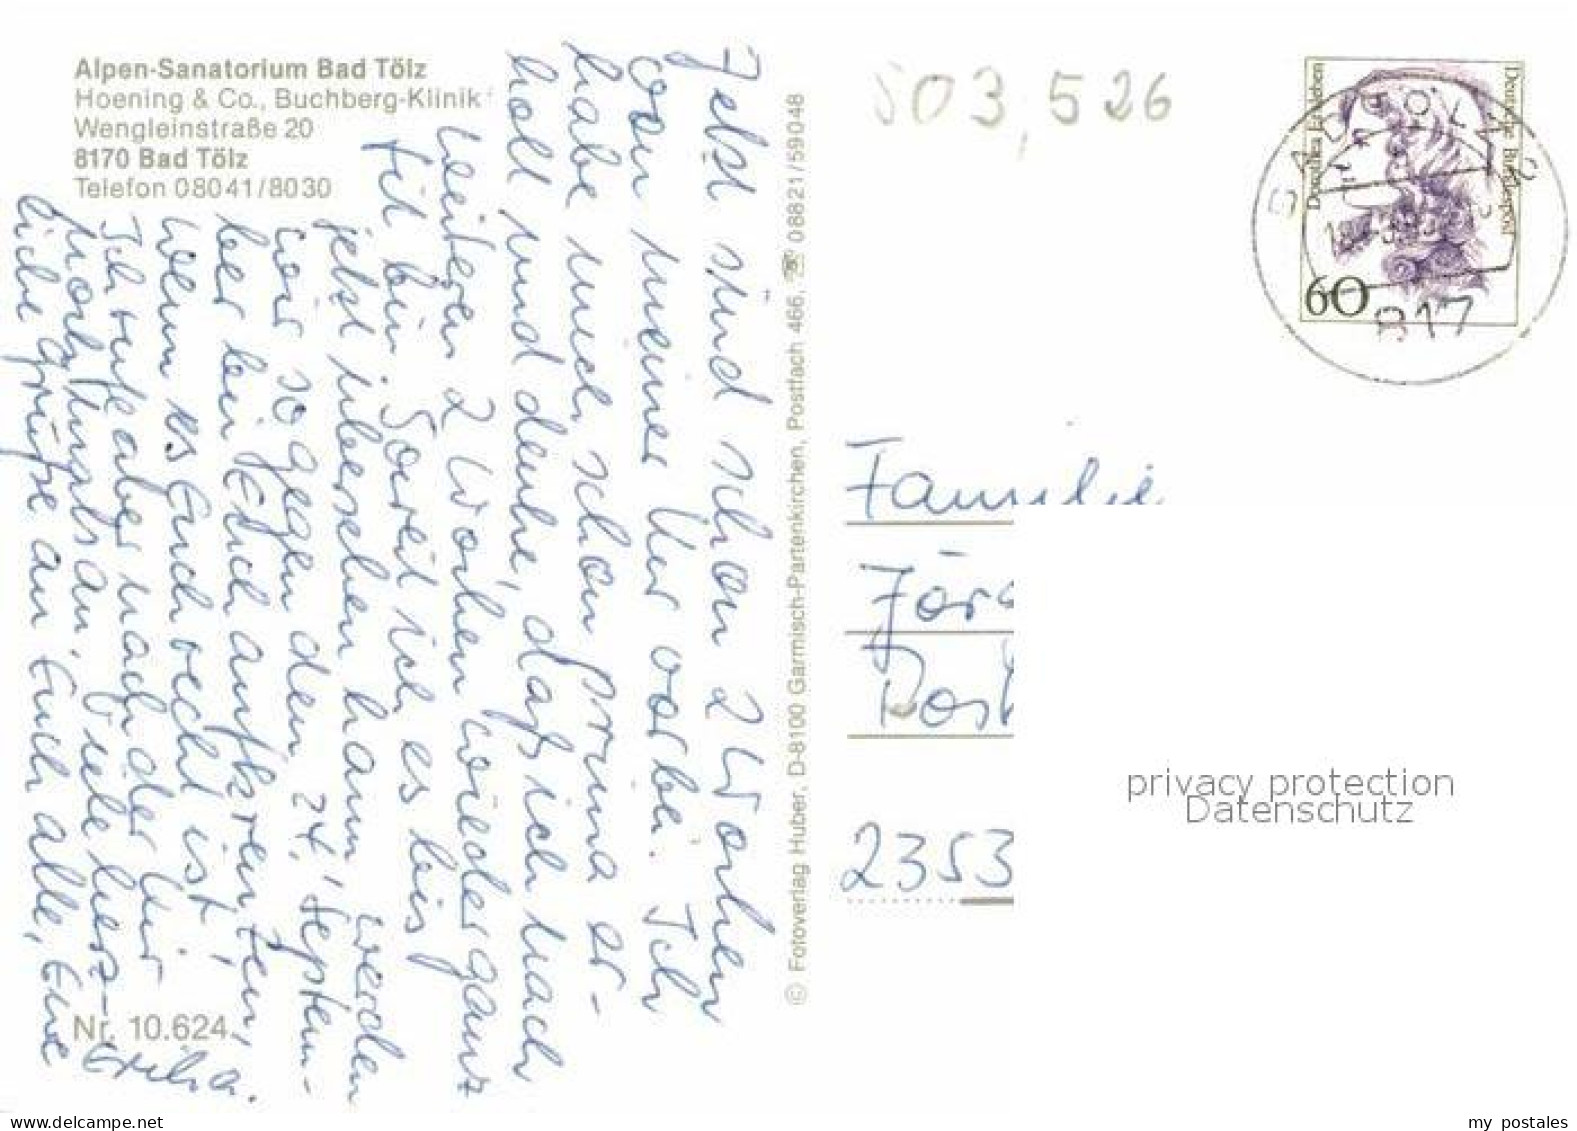 Alpen-Sanatorium Bad Tölz
Hoening & Co., Buchberg-Klinik
Wengleinstraße 20
8170 Bad Tölz
Telefon 08041/8030
Jetzt sind schon 2 Wochen
von meiner Kur vorbei. Ich
habe mich schon prima er-
holt und denke, daß ich nach
weiteren 2 Wochen wieder ganz
fit bin. Soweit ich es bis
jetzt übersehen kann, werden
wir so gegen den 24. Septem-
ber bei Euch aufkreuzen,
wenn es Euch recht ist.
Ich rufe aber nach der Kur
nochmals an. Viele herz-
liche Grüße an Euch alle, Eure
Nr. 10.624
© Fotoverlag Huber, D-8100 Garmisch-Partenkirchen, Postfach 466, ☏ 08821/59048
503,526
Deutsche Bundespost
Dorothea Erxleben
60
BAD TÖLZ
817
Familie
Jörg
Post
2353
privacy protection
Datenschutz
my postales